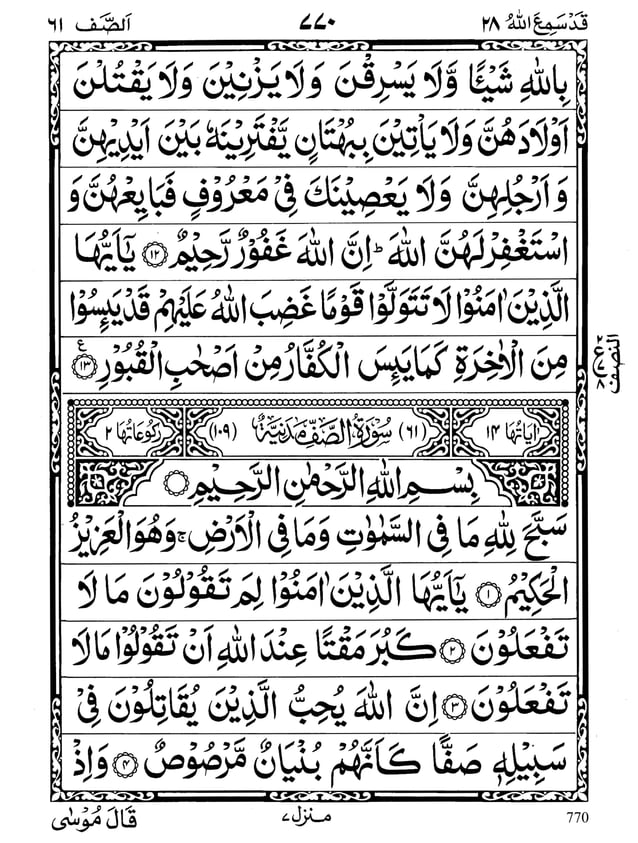 قَدْ سَمِعَ اللّٰهُ ٢٨
٧٧٠
اَلصَّفّ ٦١
بِاللّٰهِ شَيْئًا وَّلَا يَسْرِقْنَ وَلَا يَزْنِيْنَ وَلَا يَقْتُلْنَ
اَوْلَادَهُنَّ وَلَا يَاْتِيْنَ بِبُهْتَانٍ يَّفْتَرِيْنَهٗ بَيْنَ اَيْدِيْهِنَّ
وَاَرْجُلِهِنَّ وَلَا يَعْصِيْنَكَ فِيْ مَعْرُوْفٍ فَبَايِعْهُنَّ وَ
اسْتَغْفِرْ لَهُنَّ اللّٰهَ ؕ اِنَّ اللّٰهَ غَفُوْرٌ رَّحِيْمٌ ﴿١٢﴾ يٰۤاَيُّهَا
الَّذِيْنَ اٰمَنُوْا لَا تَتَوَلَّوْا قَوْمًا غَضِبَ اللّٰهُ عَلَيْهِمْ قَدْ يَىِٕسُوْا
مِنَ الْاٰخِرَةِ كَمَا يَىِٕسَ الْكُفَّارُ مِنْ اَصْحٰبِ الْقُبُوْرِ ﴿١٣﴾ ع
النصف
اٰيَاتُهَا ١٤
(٦١) سُوْرَةُ الصَّفِّ مَدَنِيَّةٌ (١٠٩)
رُكُوْعَاتُهَا ٢
بِسْمِ اللّٰهِ الرَّحْمٰنِ الرَّحِيْمِ
سَبَّحَ لِلّٰهِ مَا فِي السَّمٰوٰتِ وَمَا فِي الْاَرْضِ ۚ وَهُوَ الْعَزِيْزُ
الْحَكِيْمُ ﴿١﴾ يٰۤاَيُّهَا الَّذِيْنَ اٰمَنُوْا لِمَ تَقُوْلُوْنَ مَا لَا
تَفْعَلُوْنَ ﴿٢﴾ كَبُرَ مَقْتًا عِنْدَ اللّٰهِ اَنْ تَقُوْلُوْا مَا لَا
تَفْعَلُوْنَ ﴿٣﴾ اِنَّ اللّٰهَ يُحِبُّ الَّذِيْنَ يُقَاتِلُوْنَ فِيْ
سَبِيْلِهٖ صَفًّا كَاَنَّهُمْ بُنْيَانٌ مَّرْصُوْصٌ ﴿٤﴾ وَاِذْ
770
منزل ٧
قَالَ مُوْسٰى